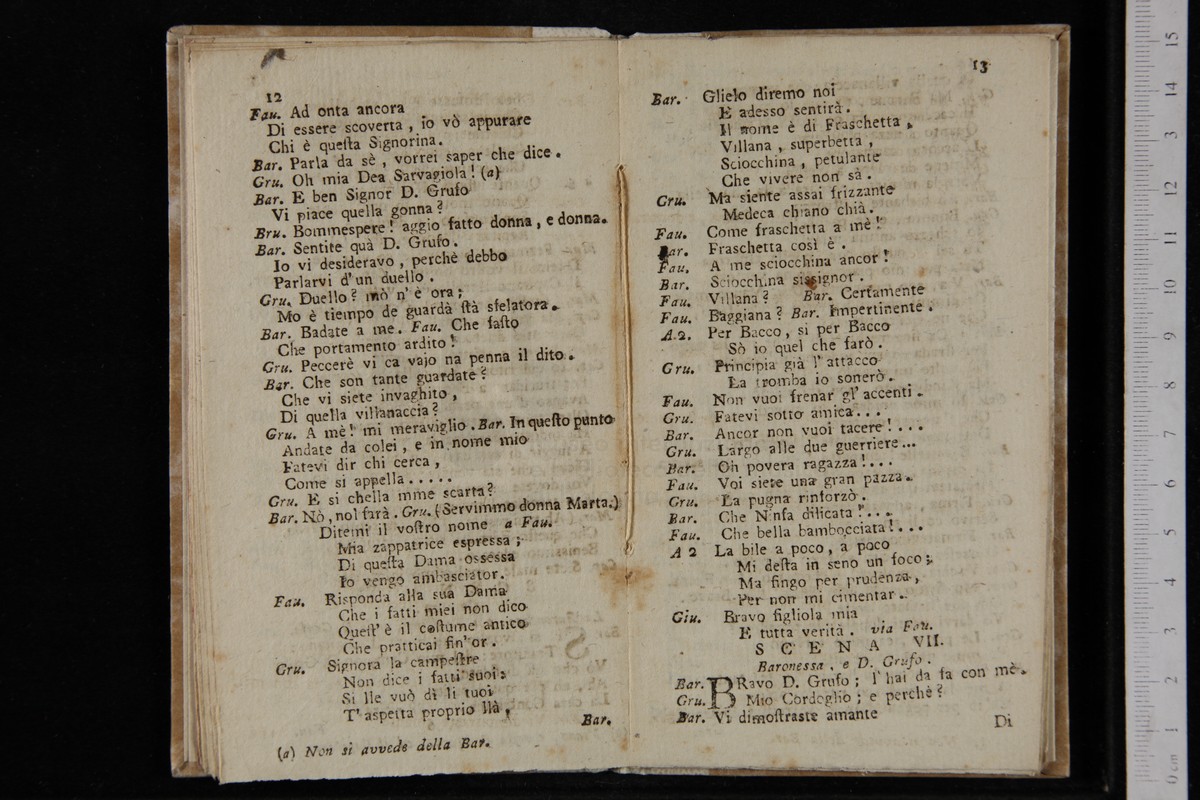 12
Fau. Ad onta ancora
Di essere scoverta , io vò appurare
Chi è queſta Signorina.
Bar. Parla da sè , vorrei saper che dice .
Gru. Oh mia Dea Sarvagiola! (a)
Bar. E ben Signor D. Grufo
Vi piace quella gonna?
Bru. Bommespere! aggio fatto donna , e donna.
Bar. Sentite quà D. Grufo.
Io vi desideravo , perchè debbo
Parlarvi d'un duello .
Gru. Duello? mò n'è ora;
Mo è tiempo de guardà ſtà sfelatora.
Bar. Badate a me. Fau. Che faſto
Che portamento ardito!
Gru. Peccerè vi ca vajo na penna il dito.
Bar. Che son tante guardate?
Che vi siete invaghito ,
Di quella villanaccia?
Gru. A mè! mi meraviglio . Bar. In queſto punto
Andate da colei , e in nome mio
Fatevi dir chi cerca ,
Come si appella . . . . .
Gru. E si chella mme scarta?
Bar. Nò , nol farà . Gru. (Servimmo donna Marta.)
Ditemi il voſtro nome a Fau.
Mia zappatrice espressa ;
Di queſta Dama ossessa
Io vengo ambasciator.
Fau. Risponda alla sua Dama
Che i fatti miei non dico
Queſt' è il coſtume antico
Che pratticai fin' or .
Gru. Signora la campeſtre
Non dice i fatti suoi:
Si lle vuò dì li tuoi
T' aspetta proprio llà ,
Bar.
(a) Non si avvede della Bar.
13
Bar. Glielo diremo noi
E adesso sentirà .
Il nome è di Fraschetta ,
Villana , superbetta ,
Sciocchina , petulante
Che vivere non sà .
Cru. Ma siente assai frizzante
Medeca chiano chià .
Fau. Come fraschetta a mè!
Bar. Fraschetta così è .
Fau. A me sciocchina ancor!
Bar. Sciocchina sissignor .
Fau. Villana? Bar. Certamente
Fau. Baggiana? Bar. Impertinente .
A 2. Per Bacco , si per Bacco
Sò io quel che farò .
Gru. Principia già l' attacco
La tromba io sonerò .
Fau. Non vuoi frenar gl' accenti .
Gru. Fatevi sotto amica . . .
Bar. Ancor non vuoi tacere! . . . .
Gru. Largo alle due guerriere ...
Bar. Oh povera ragazza! . . .
Fau. Voi siete una gran pazza .
Gru. La pugna rinforzò .
Bar. Che Ninfa dilicata! . . .
Fau. Che bella bambocciata! . . .
A 2 La bile a poco , a poco
Mi deſta in seno un foco ;
Ma fingo per prudenza ,
Per non mi cimentar .
Giu. Bravo figliola mia
E tutta verità . via Fau.
SCENA VII.
Baronessa , e D. Grufo .
Bar. BRavo D. Grufo ; l' hai da fa con mè .
Gru. Mio Cordoglio ; e perchè?
Bar. Vi dimoſtraste amante
Di
15
14
13
12
11
10
9
8
7
6
5
4
3
2
1
0 cm